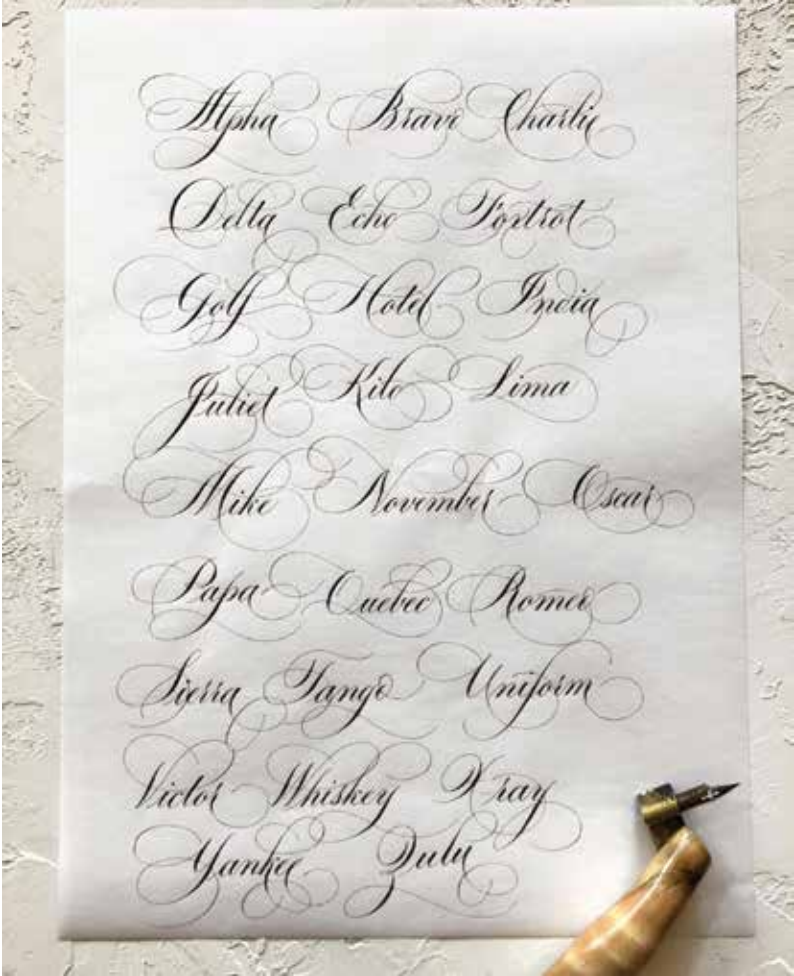 Alpha Bravo Charlie
Delta Echo Foxtrot
Golf Hotel India
Juliet Kilo Lima
Mike November Oscar
Papa Quebec Romeo
Sierra Tango Uniform
Victor Whiskey Xray
Yankee Zulu